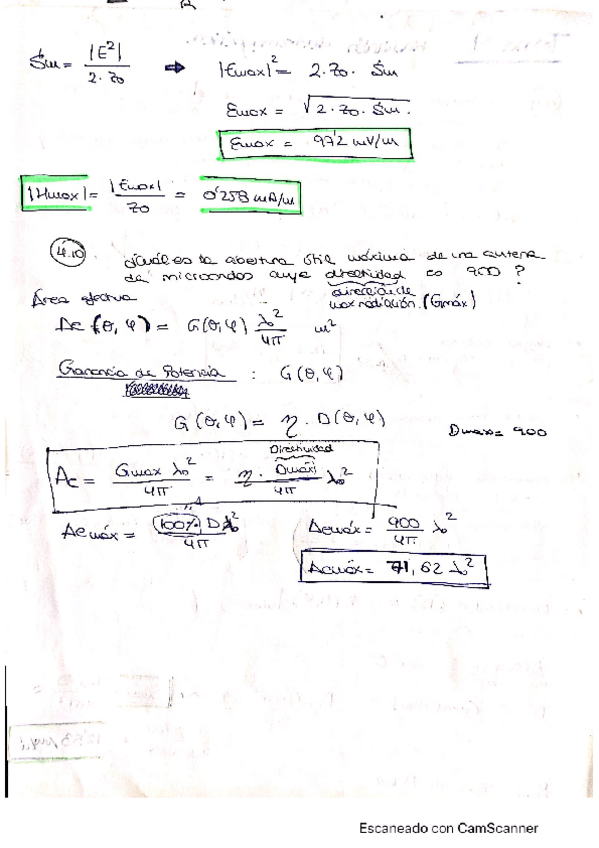 R
Sm = |E²| / 2·Z0 ⇒ |Emax|² = 2·Z0·Sm
Emax = √2·Z0·Sm.
Emax = 97'2 mV/m
|Hmax| = |Emax| / Z0 = 0'258 mA/m
4.10 ¿Cuál es la abertura útil máxima de una antena
de microondas cuya directividad es 900?
dirección de
Área efectiva max radiación. (Gmáx)
Ae (θ, φ) = G(θ, φ) λ0² / 4π m²
Ganancia de Potencia : G(θ, φ)
G(θ, φ) = η · D(θ, φ)
Dmax = 900
Directividad
Ae = Gmax λ0² / 4π = η · Dmáx / 4π λ0²
Aemáx = 100% D λ0² / 4π
Aemáx = 900 / 4π λ0²
Aemáx = 71,62 λ0²
Escaneado con CamScanner